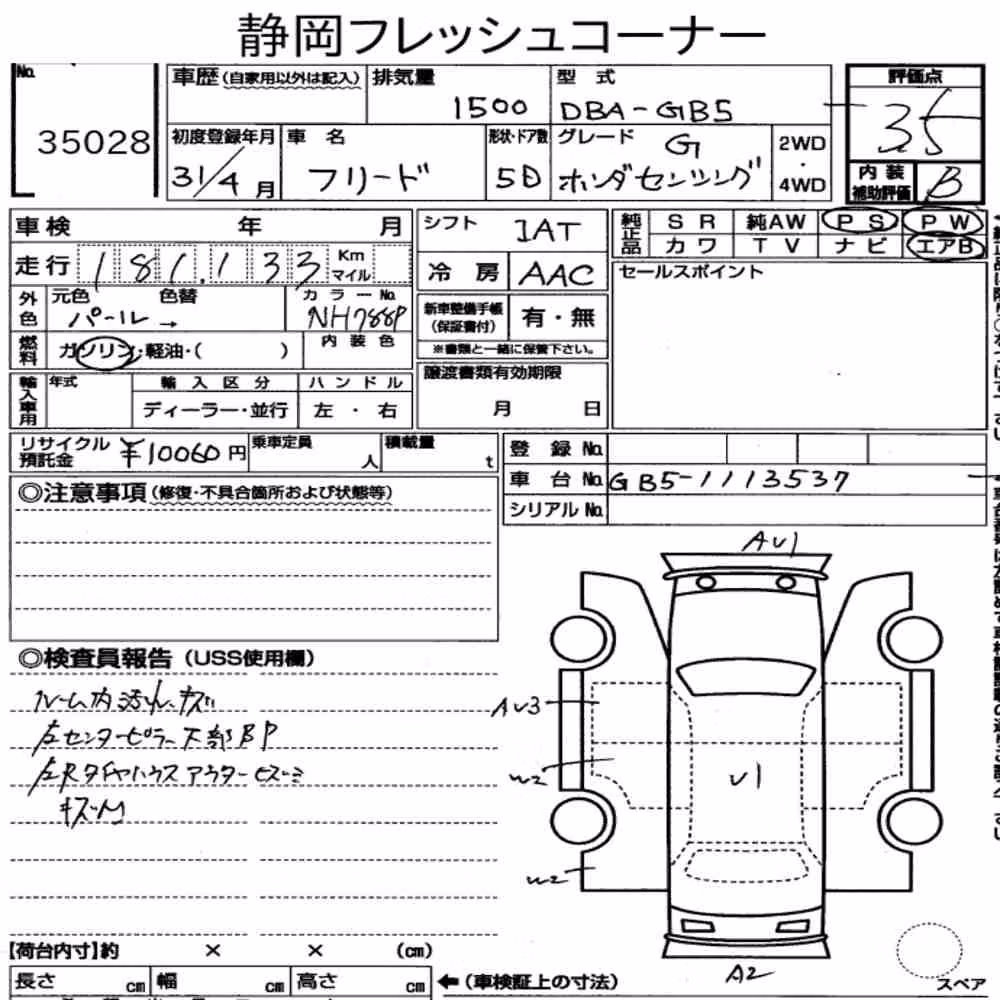 静岡フレッシュコーナー
No. 35028
車歴 (自家用以外は記入)
排気量 1500
型式 DBA-GB5
評価点 3.5
初度登録年月 31/4月
車名 フリード
形状・ドア数 5D
グレード G ホンダセンシング
2WD ・ 4WD
内装補助評価 B
車検 年 月
シフト IAT
純正品 SR 純AW PS PW
カワ TV ナビ エアB
走行 181,133 Km マイル
冷房 AAC
セールスポイント
外色 元色 パール 色替 →
カラーNo. NH788P
新車整備手帳 (保証書付) 有・無
※書類と一緒に保管下さい。
燃料 ガソリン・軽油・( )
内装色
譲渡書類有効期限
月 日
輸入車用 年式 輸入区分 ハンドル
ディーラー・並行 左・右
リサイクル預託金 ¥10060円
乗車定員 人
積載量 t
登録No.
車台No. GB5-1113537
シリアルNo.
◎注意事項 (修復・不具合箇所および状態等)
◎検査員報告 (USS使用欄)
ルーム内汚れ、キズ
左センターピラー下部BP
AU1
AU3
U1
A2
【荷台内寸】約 × × (cm)
長さ cm 幅 cm 高さ cm
←(車検証上の寸法)
スペア